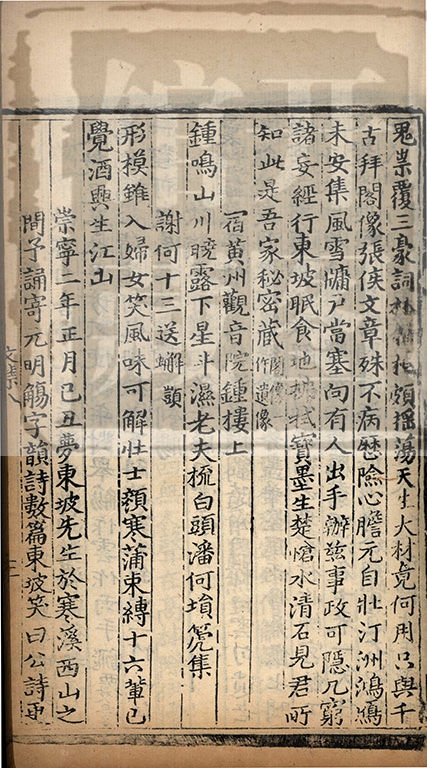 鬼祟覆三豪詞林根柢頗搖蕩天生大材竟何用只與千
古拜閣像張侯文章殊不病歷險心膽元自壯汀洲鴻鴈
未安集風雪牖戶當塞向有人出手辦茲事政可隱几窮
諸妄經行東坡眠食地拂拭寶墨生楚愴水清石見君所
知此是吾家秘密藏閣一作遺像
宿黃州觀音院鍾樓上
鍾鳴山川曉露下星斗濕老夫梳白頭潘何塤篪集
謝何十三送蠏
形模雖入婦女笑風味可解壯士顏寒蒲束縛十六輩已
覺酒興生江山
崇寧二年正月己丑夢東坡先生於寒溪西山之
間予誦寄元明觴字韻詩數篇東坡笑曰公詩更
文集八